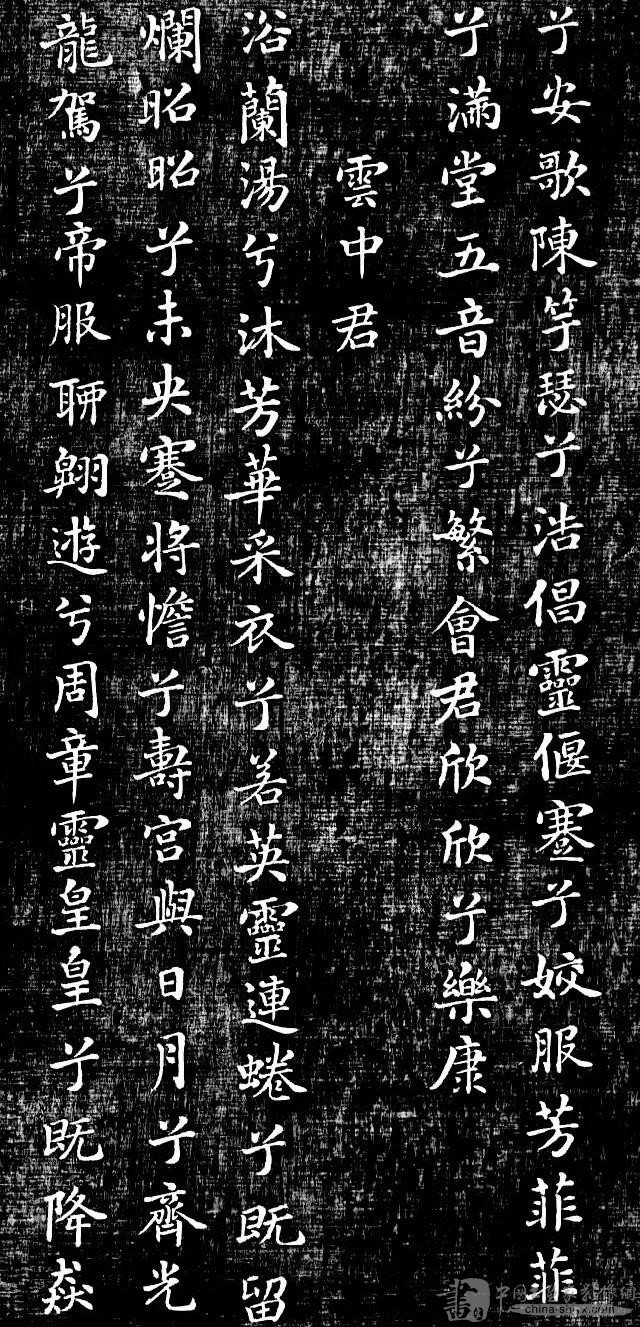 兮安歌陳竽瑟兮浩倡靈偃蹇兮姣服芳菲菲
兮滿堂五音紛兮繁會君欣欣兮樂康
雲中君
浴蘭湯兮沐芳華采衣兮若英靈連蜷兮既留
爛昭昭兮未央蹇將憺兮壽宮與日月兮齊光
龍駕兮帝服聊翱遊兮周章靈皇皇兮既降猋
china-shyx.com